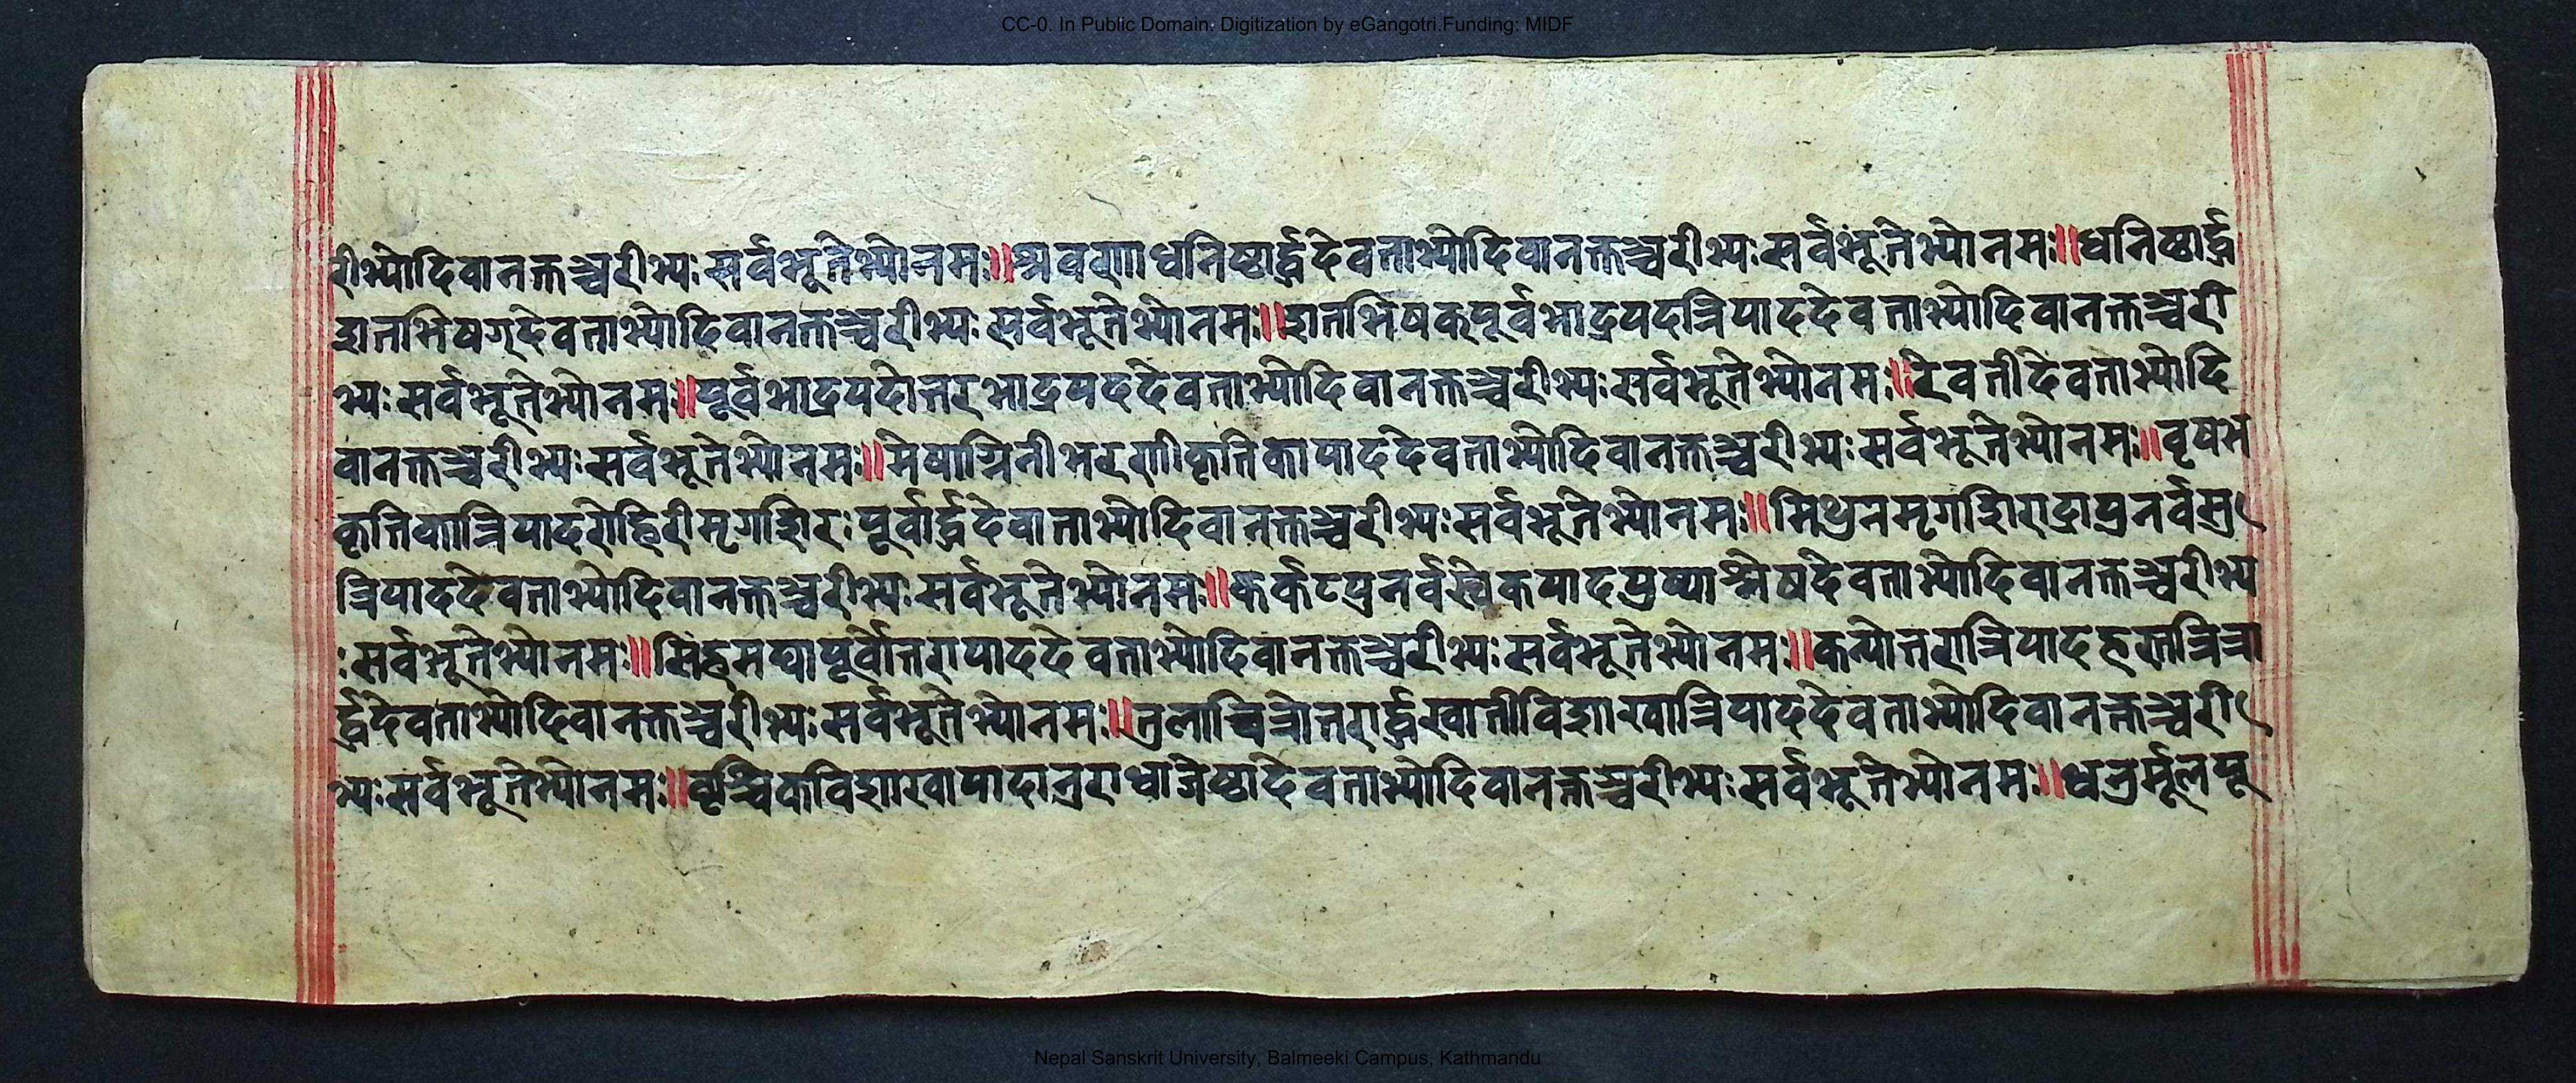 CC-0. In Public Domain. Digitization by eGangotri.Funding: MIDF
रीभ्योदिवानक्तञ्चरीभ्यःसर्वभूतेभ्योनमः॥श्रवणाधनिष्ठार्द्धदेवताभ्योदिवानक्तञ्चरीभ्यःसर्वभूतेभ्योनमः॥धनिष्ठार्द्ध
शतभिषग्देवताभ्योदिवानक्तञ्चरीभ्यःसर्वभूतेभ्योनमः॥शतभिषक्पूर्वभाद्रपदत्रिपाददेवताभ्योदिवानक्तञ्चरी
भ्यःसर्वभूतेभ्योनमः॥पूर्वभाद्रपदोत्तरभाद्रपददेवताभ्योदिवानक्तञ्चरीभ्यःसर्वभूतेभ्योनमः॥रेवतीदेवताभ्योदि
वानक्तञ्चरीभ्यःसर्वभूतेभ्योनमः॥मेषाश्विनीभरणीकृत्तिकापाददेवताभ्योदिवानक्तञ्चरीभ्यःसर्वभूतेभ्योनमः॥वृषभ
कृत्तिकात्रिपादरोहिरीमृगशिरःपूर्वार्द्धदेवाताभ्योदिवानक्तञ्चरीभ्यःसर्वभूतेभ्योनमः॥मिथुनमृगशिरार्द्रापुनर्वसु
त्रिपाददेवताभ्योदिवानक्तञ्चरीभ्यःसर्वभूतेभ्योनमः॥कर्कटपुनर्वस्वेकपादपुष्याश्लेषदेवताभ्योदिवानक्तञ्चरीभ्य
ःसर्वभूतेभ्योनमः॥सिंहमघापूर्वोत्तरापाददेवताभ्योदिवानक्तञ्चरीभ्यःसर्वभूतेभ्योनमः॥कन्योत्तरात्रिपादहस्तचित्रा
र्द्धदेवताभ्योदिवानक्तञ्चरीभ्यःसर्वभूतेभ्योनमः॥तुलाचित्रोत्तरार्द्धस्वातीविशाखात्रिपाददेवताभ्योदिवानक्तञ्चरी
भ्यःसर्वभूतेभ्योनमः॥वृश्चिकविशाखापादानुराधाजेष्ठादेवताभ्योदिवानक्तञ्चरीभ्यःसर्वभूतेभ्योनमः॥धनुर्मूलपू
Nepal Sanskrit University, Balmeeki Campus, Kathmandu